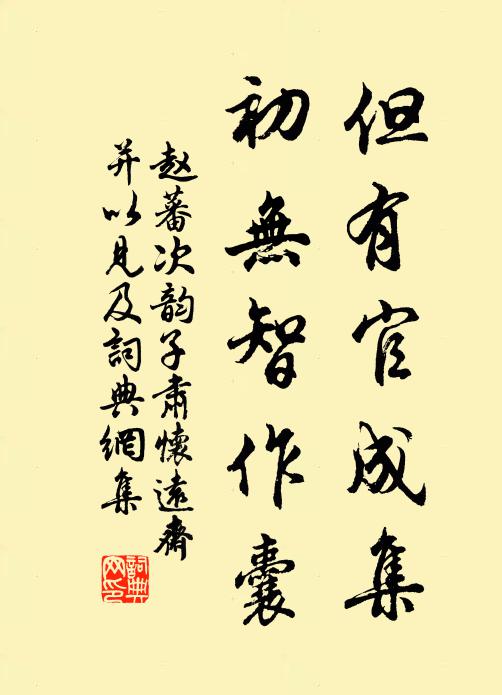 但有官成集
初無智作囊
赵蕃次韵子肅懷遠齋
并以見及詞典網集
詞典網印